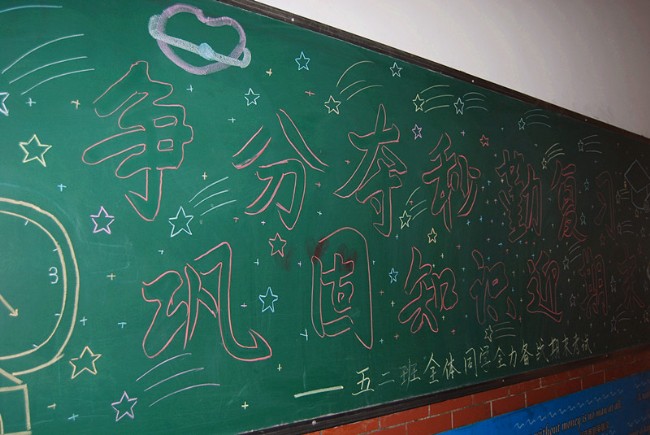 争分夺秒勤复习
巩固知识迎期末
——五二班全体同学全力备战期末考试
3